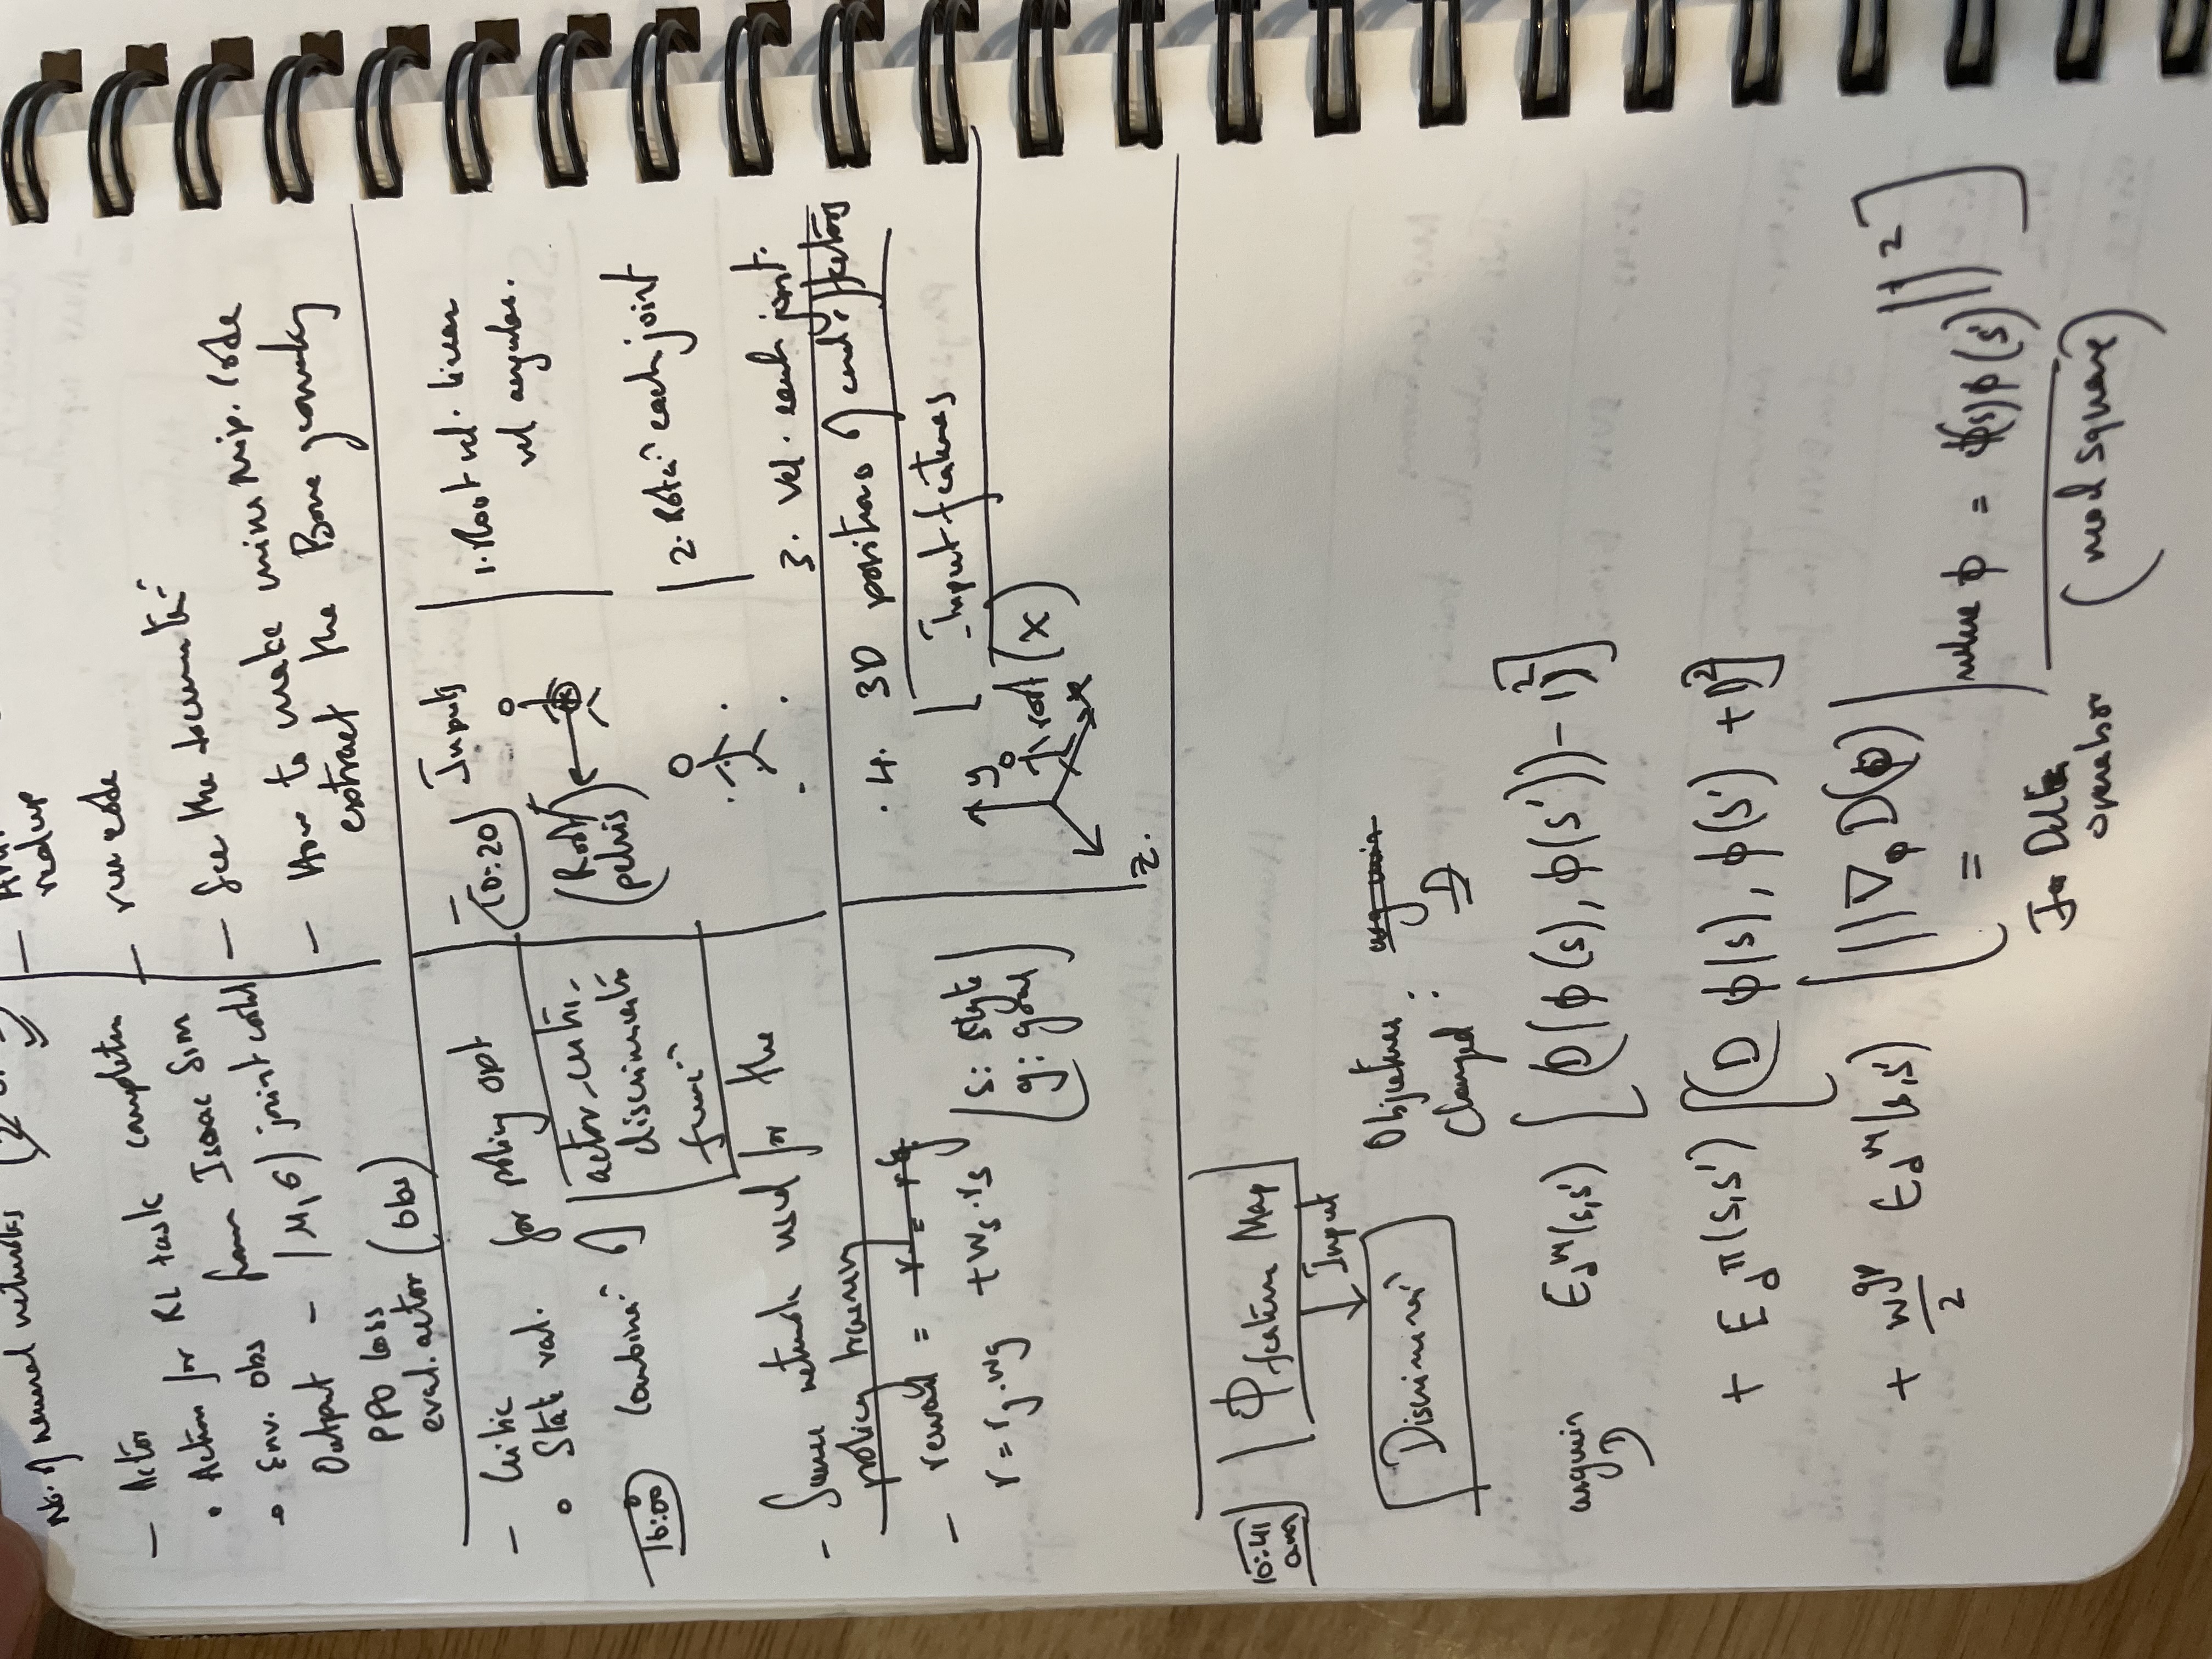 No. of neural networks
- Actor
• Action for RL task completn
• Env. obs from Isaac Sim
Output - (μ, σ) joint
PPO loss
eval.actor (obs)
readup
- run code
- See the
- How to make mip. code
extract the Bone geometry
- Critic
• State val. for policy opt
10:00
Combinaⁿ of
actor-criti-
discriminatn
funcⁿ
- Same network used for the
policy training
- reward = r = rg
r = rg.wg + ws.rs
(s: style
g: goal)
10:20
Inputs
(Root
pelvis)
1. Root vel. linear
vel angular.
2. Rotaⁿ each joint
3. Vel. each joint.
4. 3D positions of end effectors
Input features
y
root (x)
x
z.
10:41
am
Φ feature Map
Input
Discriminaⁿ
Objective
Changed : arg min
D
argmin
D
E d^M(s,s') [(D(ϕ(s), ϕ(s'))-1)²]
+ E d^π(s,s') [(D ϕ(s), ϕ(s') +1)²]
+ w^gp/2 E d^M(s,s') [||∇ϕ D(ϕ)| where ϕ = ϕ(s)ϕ(s')||²]
=
For Delta
operator
(mod square)